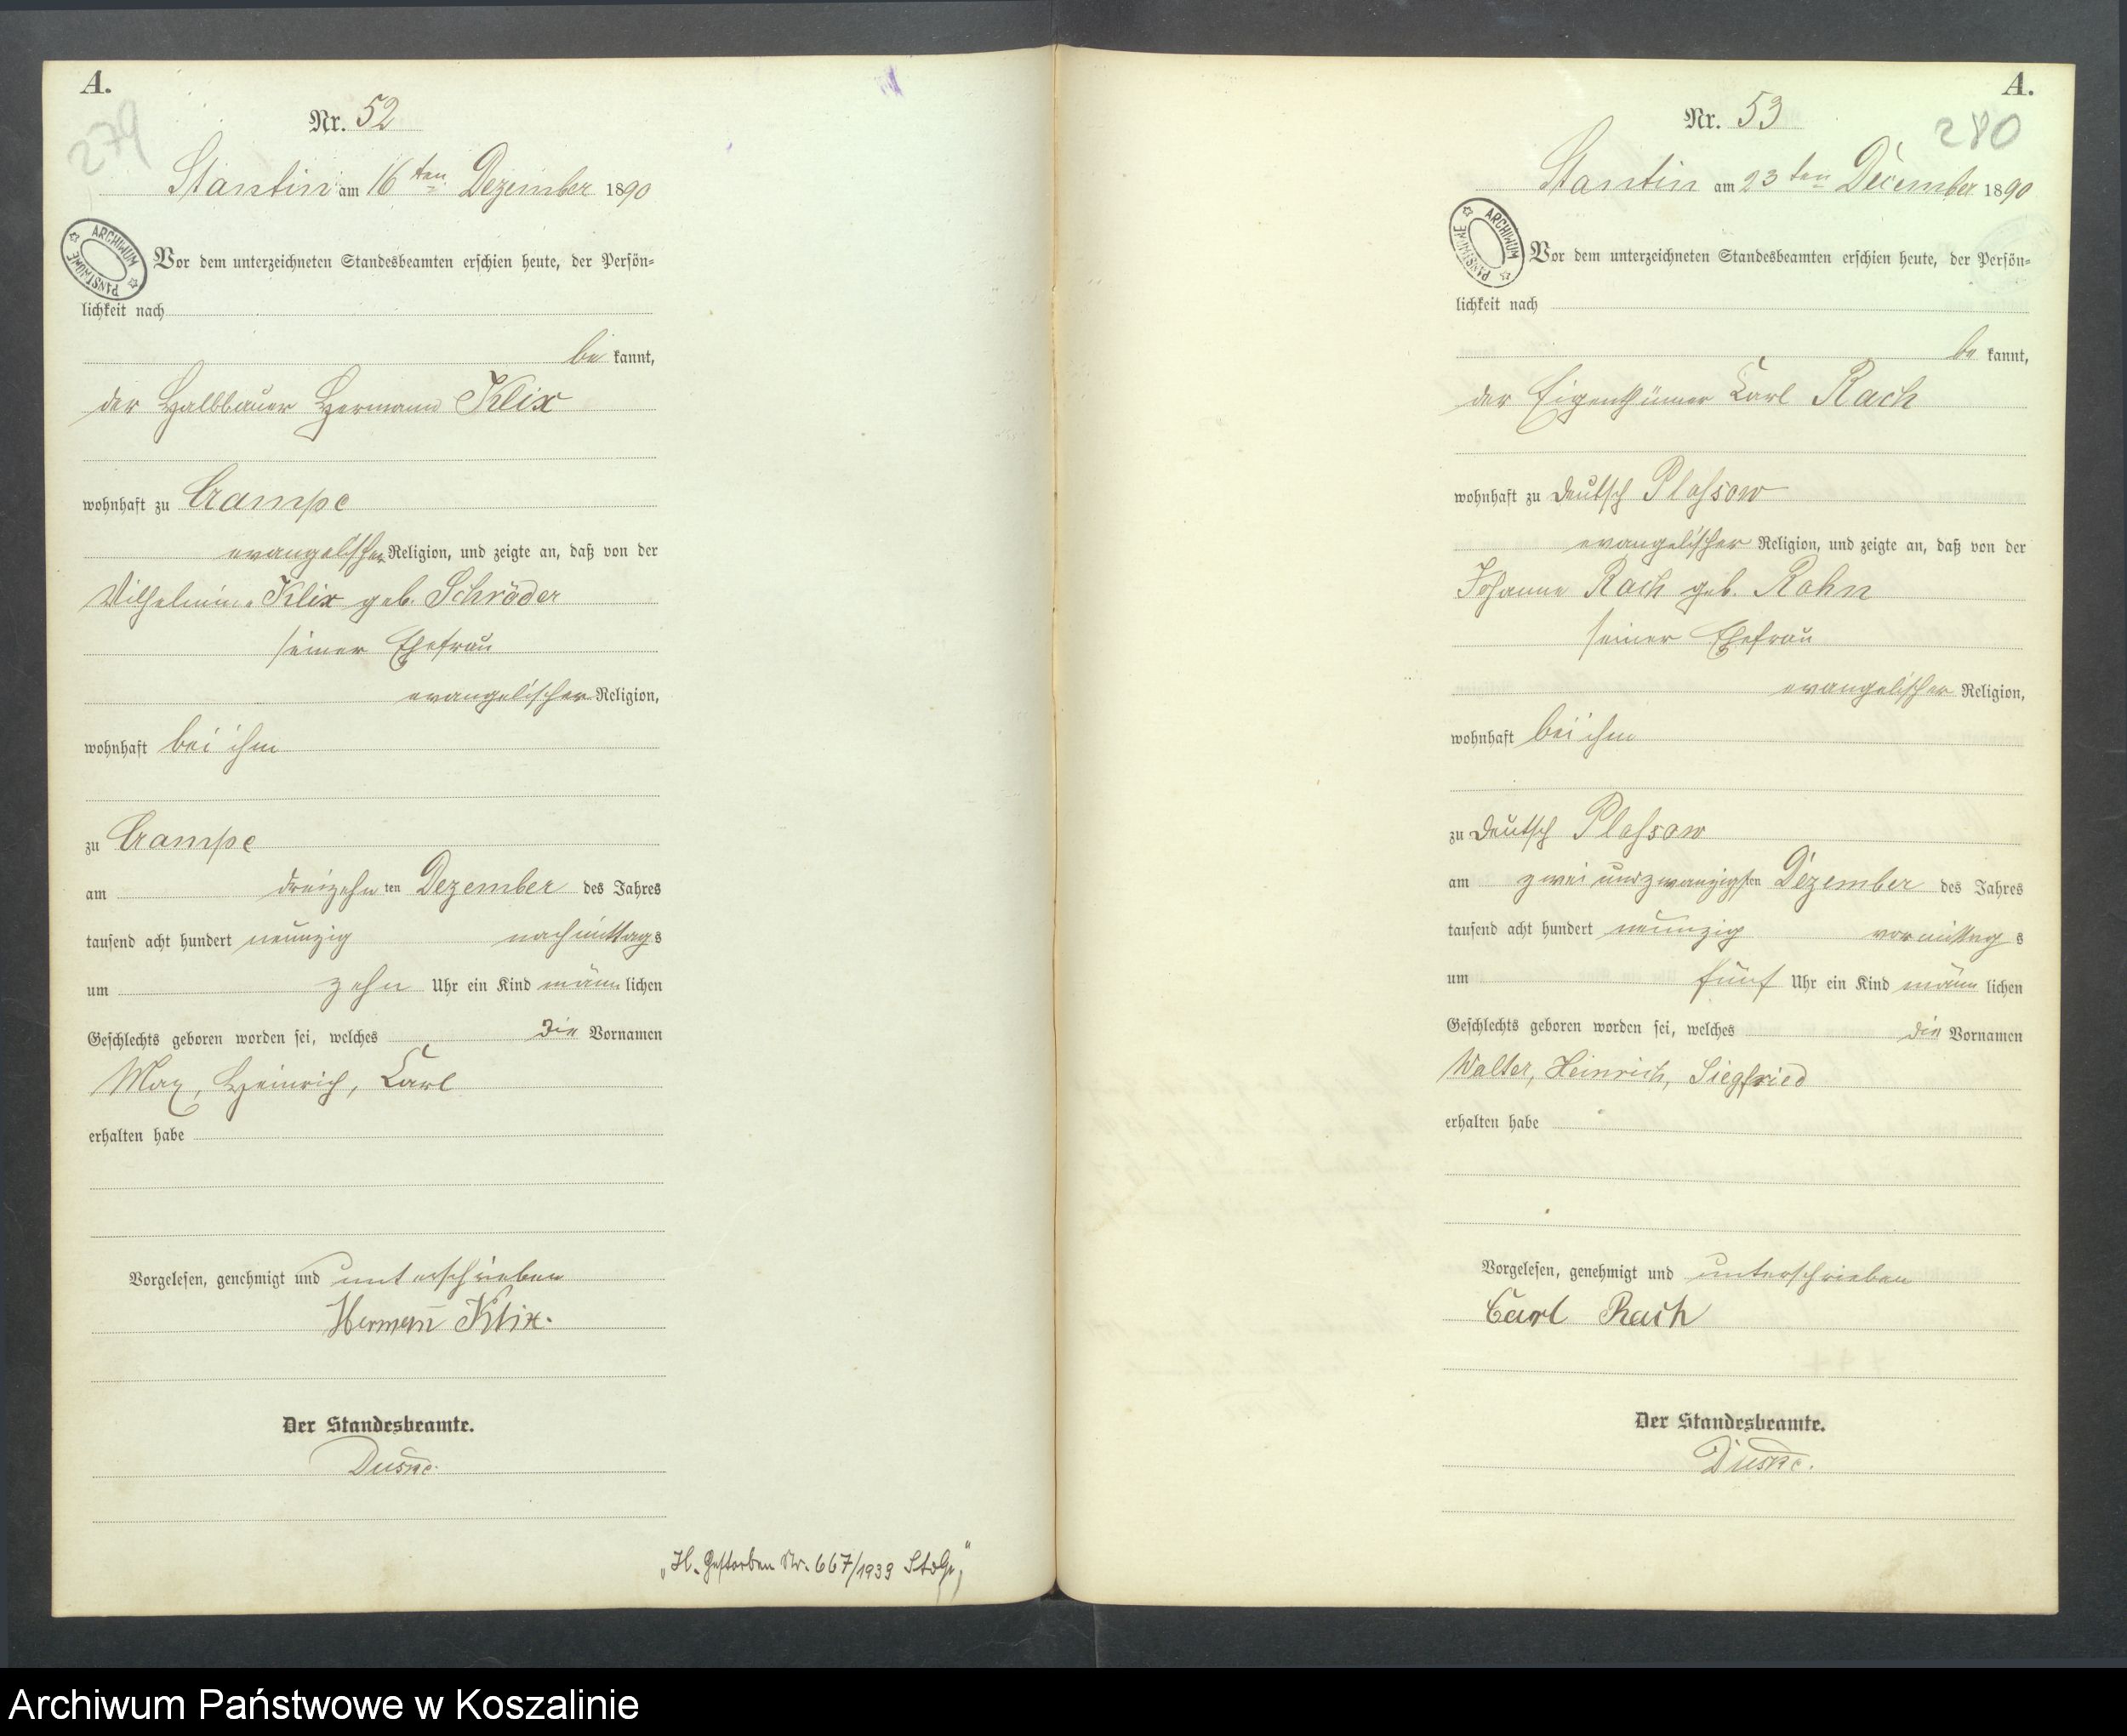 A.
279
Nr. 52
Stantin am 16ten Dezember 1890
ARCHIWUM PAŃSTWOWE
Vor dem unterzeichneten Standesbeamten erschien heute, der Persön=
lichkeit nach
be kannt,
der Halbbauer Hermann Klix
wohnhaft zu Gampe
evangelischer Religion, und zeigte an, daß von der
Wilhelmine Klix geb. Schröder
seiner Ehefrau
evangelischer Religion,
wohnhaft bei ihm
zu Gampe
am dreizehn ten Dezember des Jahres
tausend acht hundert neunzig nachmittags
um zehn Uhr ein Kind männ lichen
Geschlechts geboren worden sei, welches die Vornamen
Max, Heinrich, Carl
erhalten habe
Vorgelesen, genehmigt und unterschrieben
Hermañ Klix.
Der Standesbeamte.
"H. Gestorben Nr. 667/1939
A.
280
Nr. 53
Stantin am 23ten December 1890
ARCHIWUM PAŃSTWOWE
Vor dem unterzeichneten Standesbeamten erschien heute, der Persön=
lichkeit nach
be kannt,
der Eigenthümer Carl Rach
wohnhaft zu Deutsch Plaßow
evangelischer Religion, und zeigte an, daß von der
Johanne Rach geb. Rahn
seiner Ehefrau
evangelischer Religion,
wohnhaft bei ihm
zu Deutsch Plaßow
am zwei und zwanzigsten Dezember des Jahres
tausend acht hundert neunzig vormittag s
um fünf Uhr ein Kind männ lichen
Geschlechts geboren worden sei, welches die Vornamen
Walter, Heinrich, Siegfried
erhalten habe
Vorgelesen, genehmigt und unterschrieben
Carl Rach
Der Standesbeamte.
Archiwum Państwowe w Koszalinie